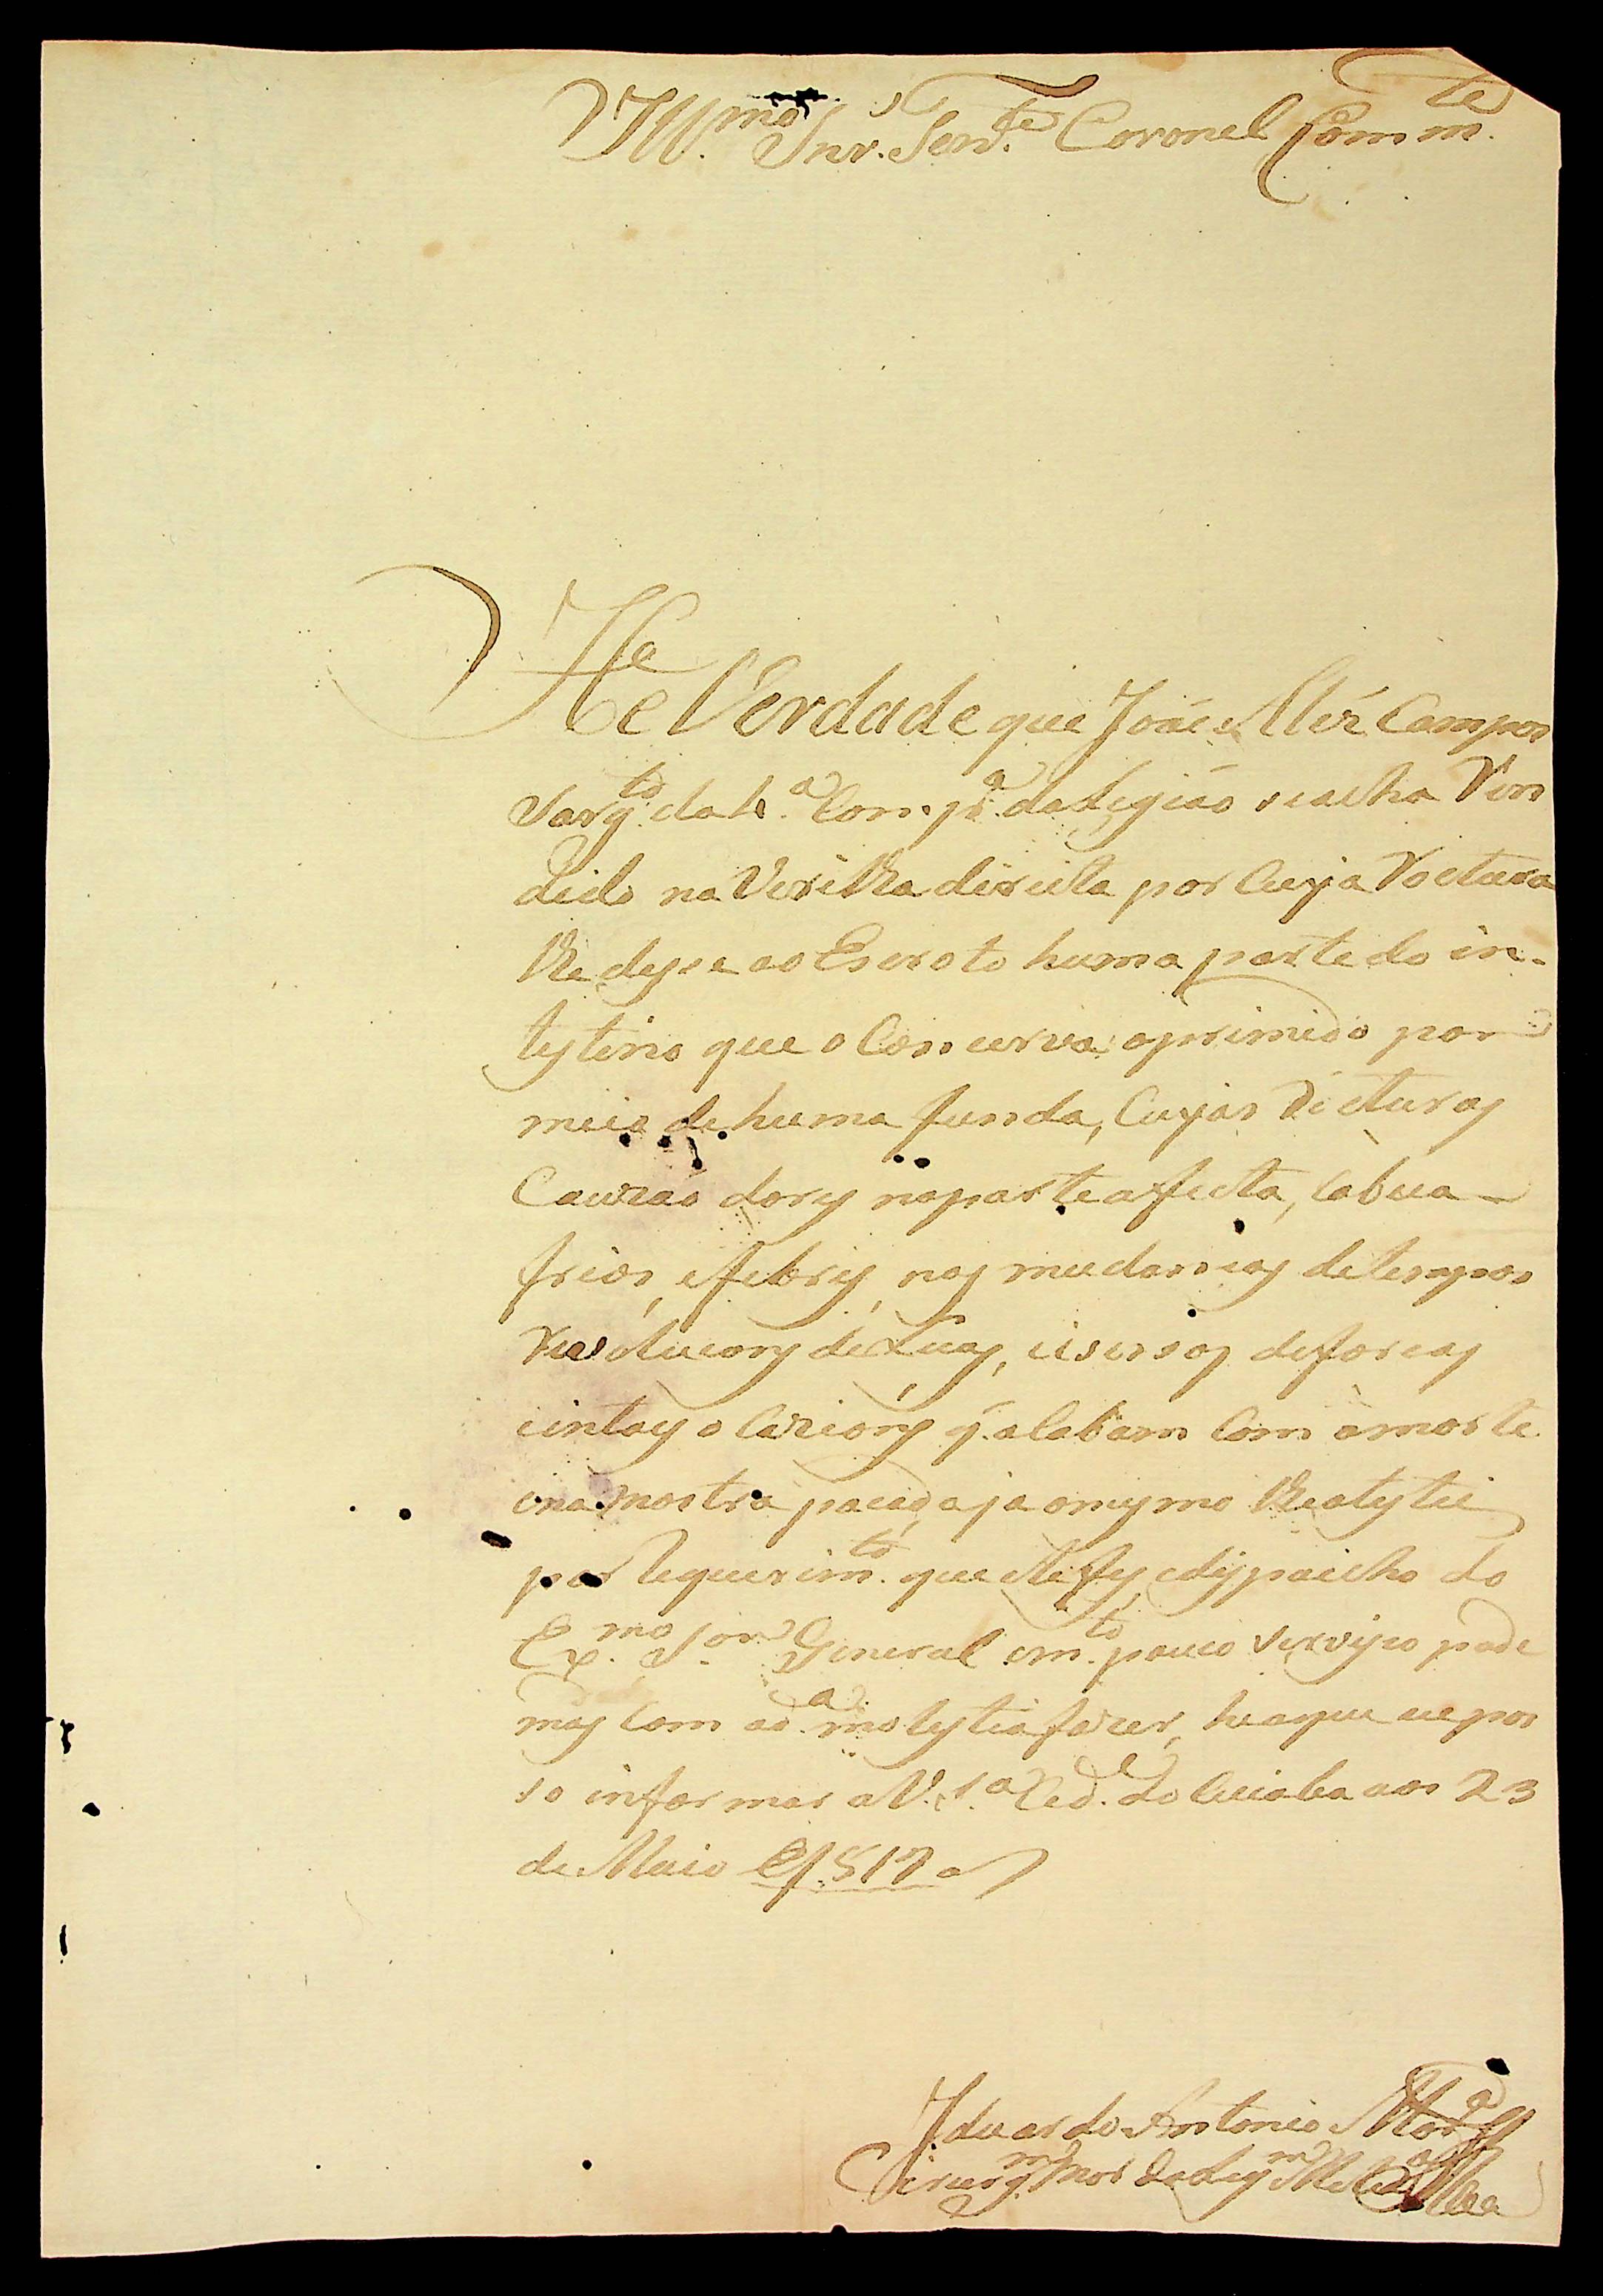 Ill.mo Snr. Ten.te Coronel Comm.te
He Verdade que Joze Alz Campos
Sarg.to da 4.a Comp.a da Legiáo se acha Ren
dido na Verilha direita por Cuja Roctura
lhe desse ao Escroto huma parte do in-
testino que o Concerva oprimido por
meio de huma funda, Cujas Rócturas
Cauzaó dores na parte afecta, Cabeca
frios, e febres, nas mudancas de tempos
Revolucoens de Luas, e isercos de forcas
e intas o Cazioens q. acabam Com a morte
e na mostra pacada ja o mesmo lhe atestei
por Requerim.to que elle fes e dispaicho do
Ex.mo Snr General em.to pouco Servico pode
mas Com ad.a molestia fazer, he o que que pos
so informar a V. S.a Cid.e do Cuiaba aos 23
de Maio de 1817
Eduardo Antonio
Cirurg.m Mor da Leg.m